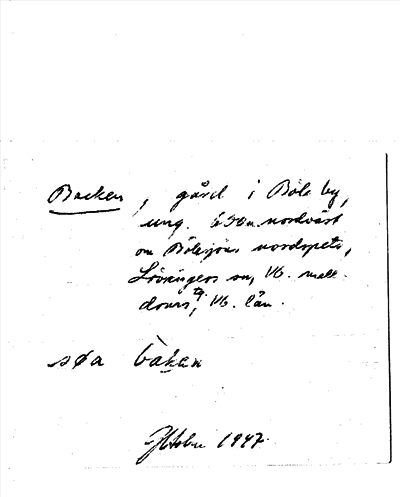 Backen, gård i Böle by,
ung. 650 m nordväst
om Bölesjöns nordspets,
Lövångers sn, Vb. mell.
doms tg, Vb. län.
søa bàkan
1947.